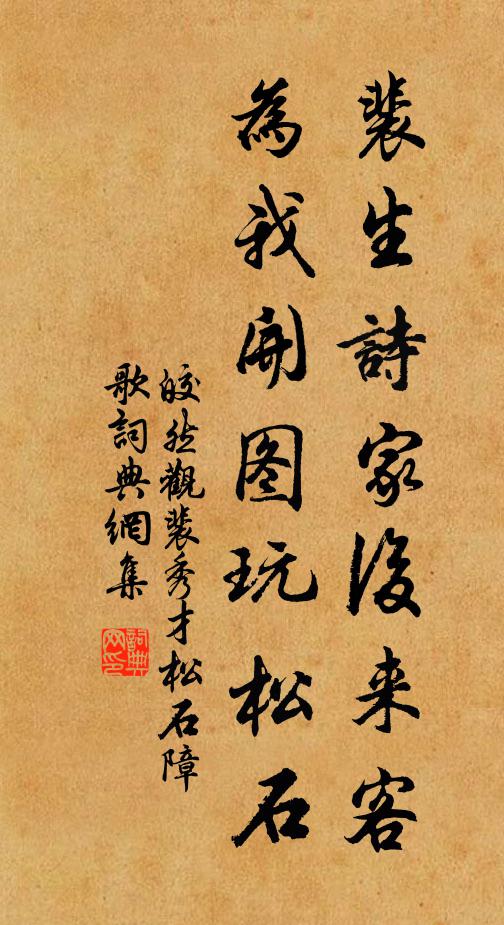 裴生詩家後来客
為我開图玩松石
皎然觀裴秀才松石障
歌詞典網集
詞典网印